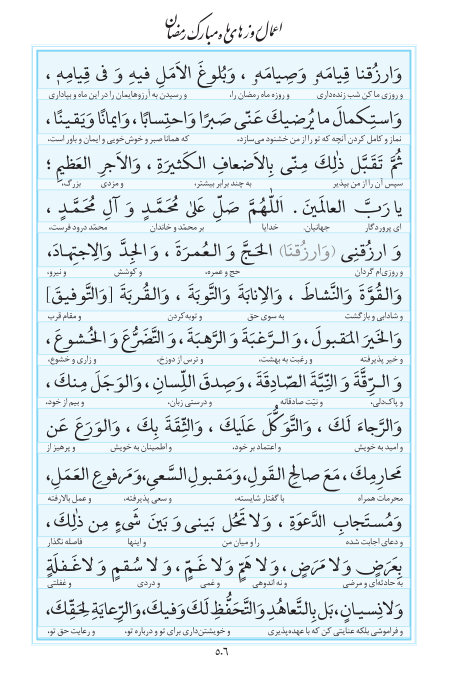 اعمال روزهای ماه مبارک رمضان
وَارزُقنا قِیامَهُ وَصِیامَهُ ، وَبُلوغَ الاَمَلِ فیهِ وَ فی قِیامِهِ ،
و روزی ما کن شب زنده‌داری و روزه ماه رمضان را، و رسیدن به آرزوهایمان را در این ماه و بپاداری
وَاستِکمالَ ما یُرضیكَ عَنّی صَبرًا وَاحتِسابًا ، وَایمانًا وَیَقینًا ،
نماز و کامل کردن آنچه که تو را از من خشنود می‌سازد، که همانا صبر و خوش‌خویی و ایمان و باور است،
ثُمَّ تَقَبَّل ذٰلِكَ مِنّی بِالاَضعافِ الکَثیرَةِ ، وَالاَجرِ العَظیمِ ؛
سپس آن را از من بپذیر به چند برابر بیشتر، و مزدی بزرگ،
یا رَبَّ العالَمینَ . اَللّٰهُمَّ صَلِّ عَلیٰ مُحَمَّدٍ وَ آلِ مُحَمَّدٍ ،
ای پروردگار جهانیان. خدایا بر محمّد و خاندان محمّد درود فرست،
وَ ارزُقنِی (وَارزُقنَا) الحَجَّ وَ العُمرَةَ ، وَ الجِدَّ وَالِاجتِهادَ،
و روزی‌ام گردان حج و عمره، و کوشش و نیرو،
وَالقُوَّةَ وَالنَّشاطَ ، وَالاِنابَةَ وَالتَّوبَةَ ، وَالقُربَةَ [وَالتَّوفیقَ]
و شادابی و بازگشت به سوی حق و توبه کردن و مقام قرب
وَالخَیرَ المَقبولَ ، وَالرَّغبَةَ وَالرَّهبَةَ ، وَالتَّضَرُّعَ وَالخُشوعَ ،
و خیر پذیرفته و رغبت به بهشت، و ترس از دوزخ، و زاری و خشوع،
وَ الرِقَّةَ وَ النِّیَّةَ الصّادِقَةَ ، وَصِدقَ اللِّسانِ ، وَالوَجَلَ مِنكَ ،
و پاک‌دلی، و نیّت صادقانه و درستی زبان، و بیم از خود،
وَالرَّجاءَ لَكَ ، وَالتَّوَکُّلَ عَلَیكَ ، وَالثِّقَةَ بِكَ ، وَالوَرَعَ عَن
و امید به خویش و اعتماد بر خود، و اطمینان به خویش و پرهیز از
مَحارِمِكَ ، مَعَ صالِحِ القَولِ، وَمَقبولِ السَّعیِ، وَمَرفوعِ العَمَلِ،
محرمات همراه با گفتار شایسته، و سعی پذیرفته، و عمل بالارفته
وَمُستَجابِ الدَّعوَةِ ، وَلا تَحُل بَینی وَ بَینَ شَیءٍ مِن ذٰلِكَ ،
و دعای اجابت شده را و میان من و اینها فاصله نگذار
بِعَرَضٍ وَلا مَرَضٍ ، وَلا هَمٍّ وَلا غَمٍّ ، وَلا سُقمٍ وَلا غَفلَةٍ
به حادثه‌ای و مرضی و نه اندوهی و غمی و دردی و غفلتی
وَلا نِسیانٍ، بَل بِالتَّعاهُدِ وَالتَّحَفُّظِ لَكَ وَفیكَ، وَالرِّعایَةِ لِحَقِّكَ،
و فراموشی بلکه عنایتی کن که با عهده‌پذیری و خویشتن‌داری برای تو و درباره تو، و رعایت حق تو،
۵۰۶